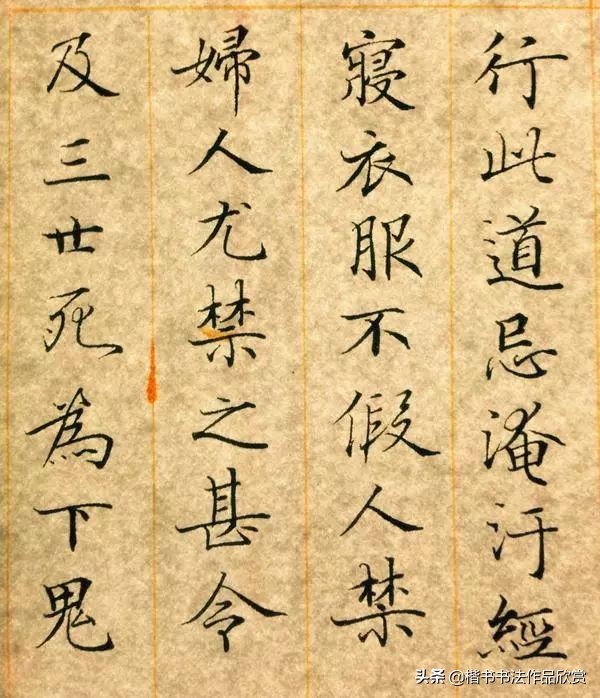 行此道忌淹汙經
寢衣服不假人禁
婦人尤禁之甚令
及三廿死為下鬼
头条@楷书书法作品欣赏